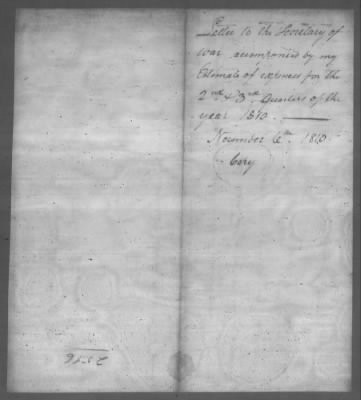 Letter to the Secretary of
war accompanied by my
Estimate of expenses for the
2nd & 3rd Quarters of the
year 1810.
November 6th 1810.
Copy
2576